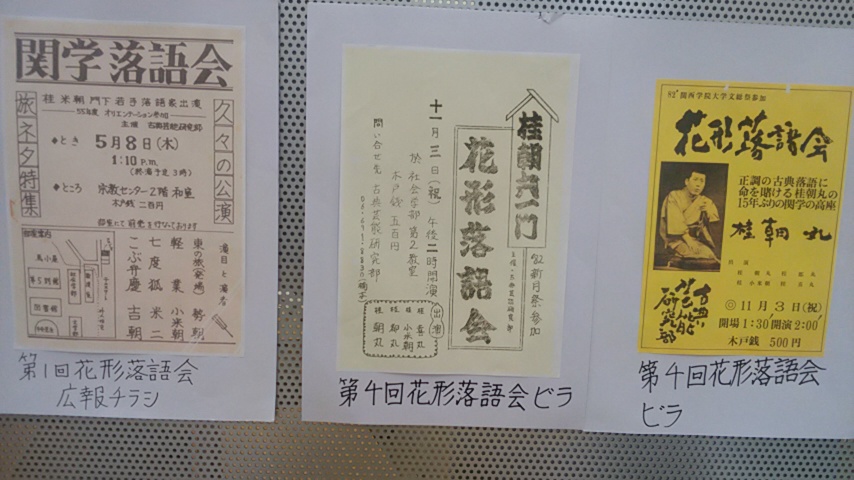 関学落語会
桂米朝門下若手落語家出演
55年度 オリエンテーション参加
主催 古典芸能研究部
久々の公演
旅ネタ特集
◆とき 5月8日(木)
1:10 P.m.
(終演予定3時)
◆ところ 宗教センター2階 和室
木戸銭 二百円
演目と演者
東の旅(発端) 勢朝
軽業 小米朝
七度狐 米二
こぶ弁慶 吉朝
第1回花形落語会
広報チラシ
桂朝丸一門
花形落語会
'82新月祭参加
主催・古典芸能研究部
十一月三日(祝)午後二時開演
於 社会学部第2教室
木戸銭 五百円
問い合せ先 古典芸能研究部
出演
桂 小米朝
桂 朝丸
第4回花形落語会ビラ
82'関西学院大学文総祭参加
花形落語会
正調の古典落語に
命を賭ける桂朝丸の
15年ぶりの関学の高座
桂朝丸
古典芸能
研究部
◎11月3日(祝)
開場1:30開演2:00
木戸銭 500円
第4回花形落語会
ビラ